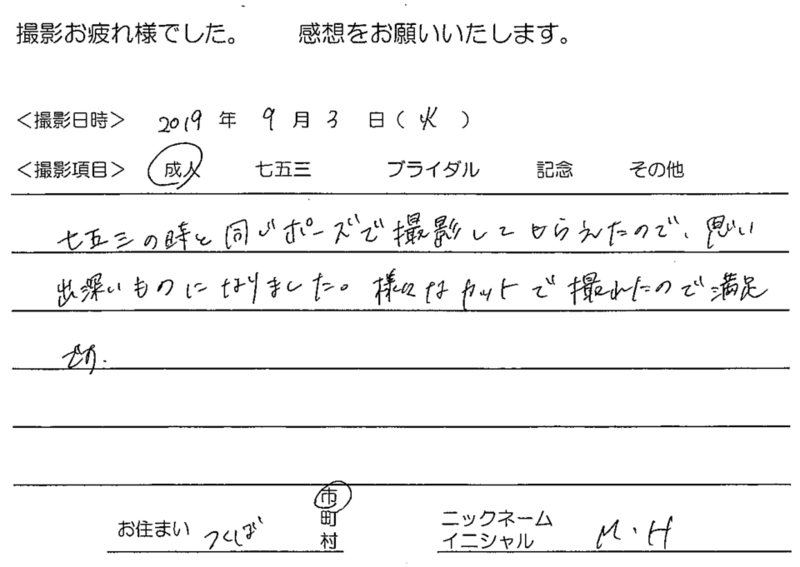 撮影お疲れ様でした。　感想をお願いいたします。
＜撮影日時＞ 2019 年 9 月 3 日（火）
＜撮影項目＞ 成人 七五三 ブライダル 記念 その他
七五三の時と同じポーズで撮影してもらえたので、思い
出深いものになりました。様々なカットで撮れたので満足
です.
お住まい つくば 市 町 村 ニックネーム イニシャル M・H